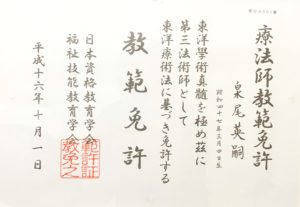 療法師教範免許
泉尾英嗣
昭和四十七年三月四日生
東洋學術真髄を極め茲に
第三法術師として
東洋療術法に基づき免許する
教範免許
日本資格教育学会
福祉技能教育学会
平成十六年十月一日